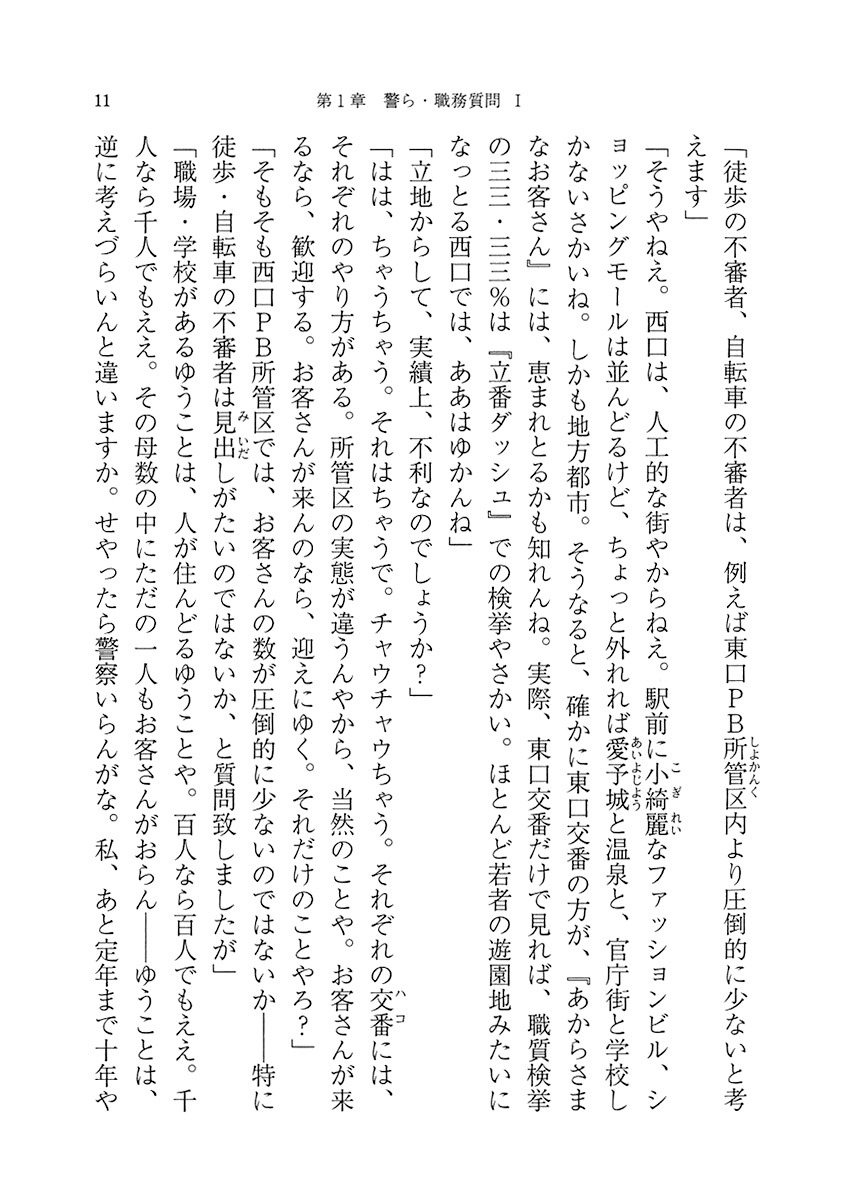 11
第1章　警ら・職務質問　Ⅰ
「徒歩の不審者、自転車の不審者は、例えば東口ＰＢ所管区内より圧倒的に少ないと考
えます」
「そうやねえ。西口は、人工的な街やからねえ。駅前に小綺麗なファッションビル、シ
ョッピングモールは並んどるけど、ちょっと外れれば愛予城と温泉と、官庁街と学校し
かないさかいね。しかも地方都市。そうなると、確かに東口交番の方が、『あからさま
なお客さん』には、恵まれとるかも知れんね。実際、東口交番だけで見れば、職質検挙
の三三・三三％は『立番ダッシュ』での検挙やさかい。ほとんど若者の遊園地みたいに
なっとる西口では、ああはゆかんね」
「立地からして、実績上、不利なのでしょうか？」
「はは、ちゃうちゃう。それはちゃうで。チャウチャウちゃう。それぞれの交番には、
それぞれのやり方がある。所管区の実態が違うんやから、当然のことや。お客さんが来
るなら、歓迎する。お客さんが来んのなら、迎えにゆく。それだけのことやろ？」
「そもそも西口ＰＢ所管区では、お客さんの数が圧倒的に少ないのではないか――特に
徒歩・自転車の不審者は見出しがたいのではないか、と質問致しましたが」
「職場・学校があるゆうことは、人が住んどるゆうことや。百人なら百人でもええ。千
人なら千人でもええ。その母数の中にただの一人もお客さんがおらん――ゆうことは、
逆に考えづらいんと違いますか。せやったら警察いらんがな。私、あと定年まで十年や